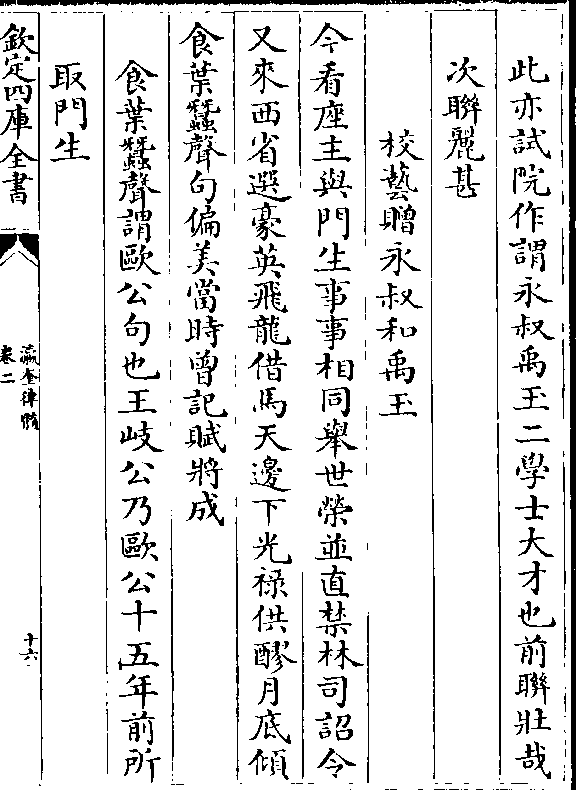 此亦試院作謂永叔禹玉二學士大才也前聯壯哉
次聯麗甚
校藝贈永叔和禹玉
今看座主與門生事事相同舉世榮並直禁林司詔令
又來西省選豪英飛龍借馬天邊下光禄供醪月底傾
食葉蠶聲句偏美當時曾記賦將成
食葉蠶聲謂歐公句也王岐公乃歐公十五年前所
取門生
欽定四庫全書
瀛奎律髓
卷二
十六